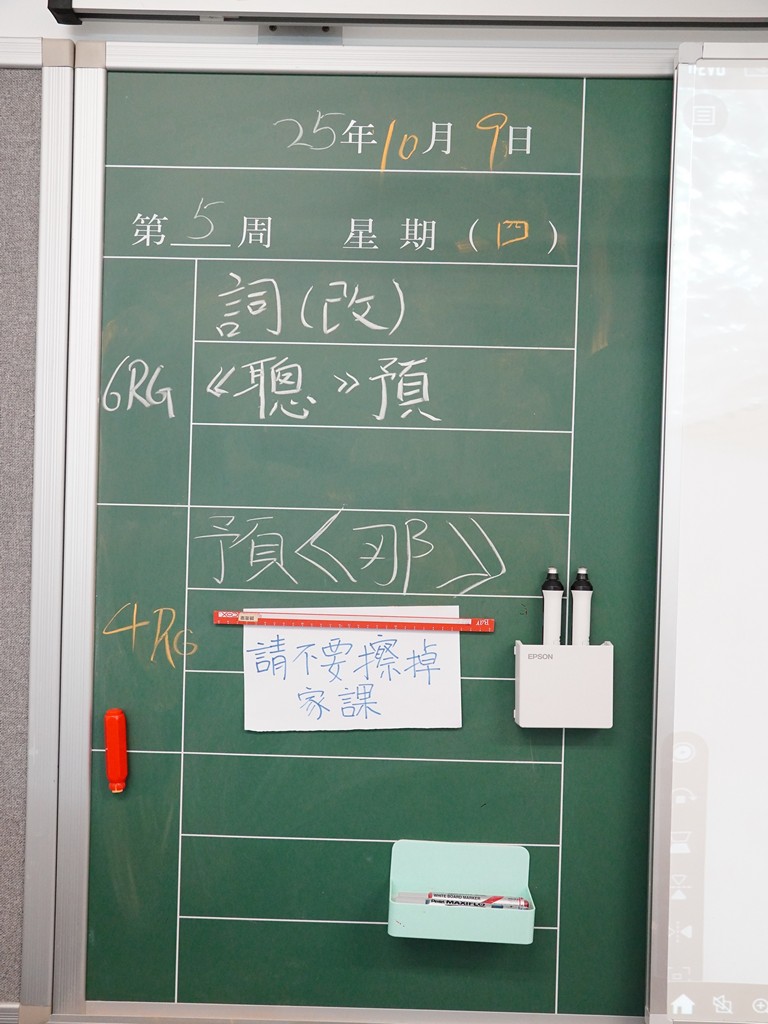 25年10月9日
第5周 星期(四)
詞(改)
6RG 《聰》預
預《那》
4RG
請不要擦掉
家課
EPSON
WHITE BOARD MARKER
Pentel MAXIFLO